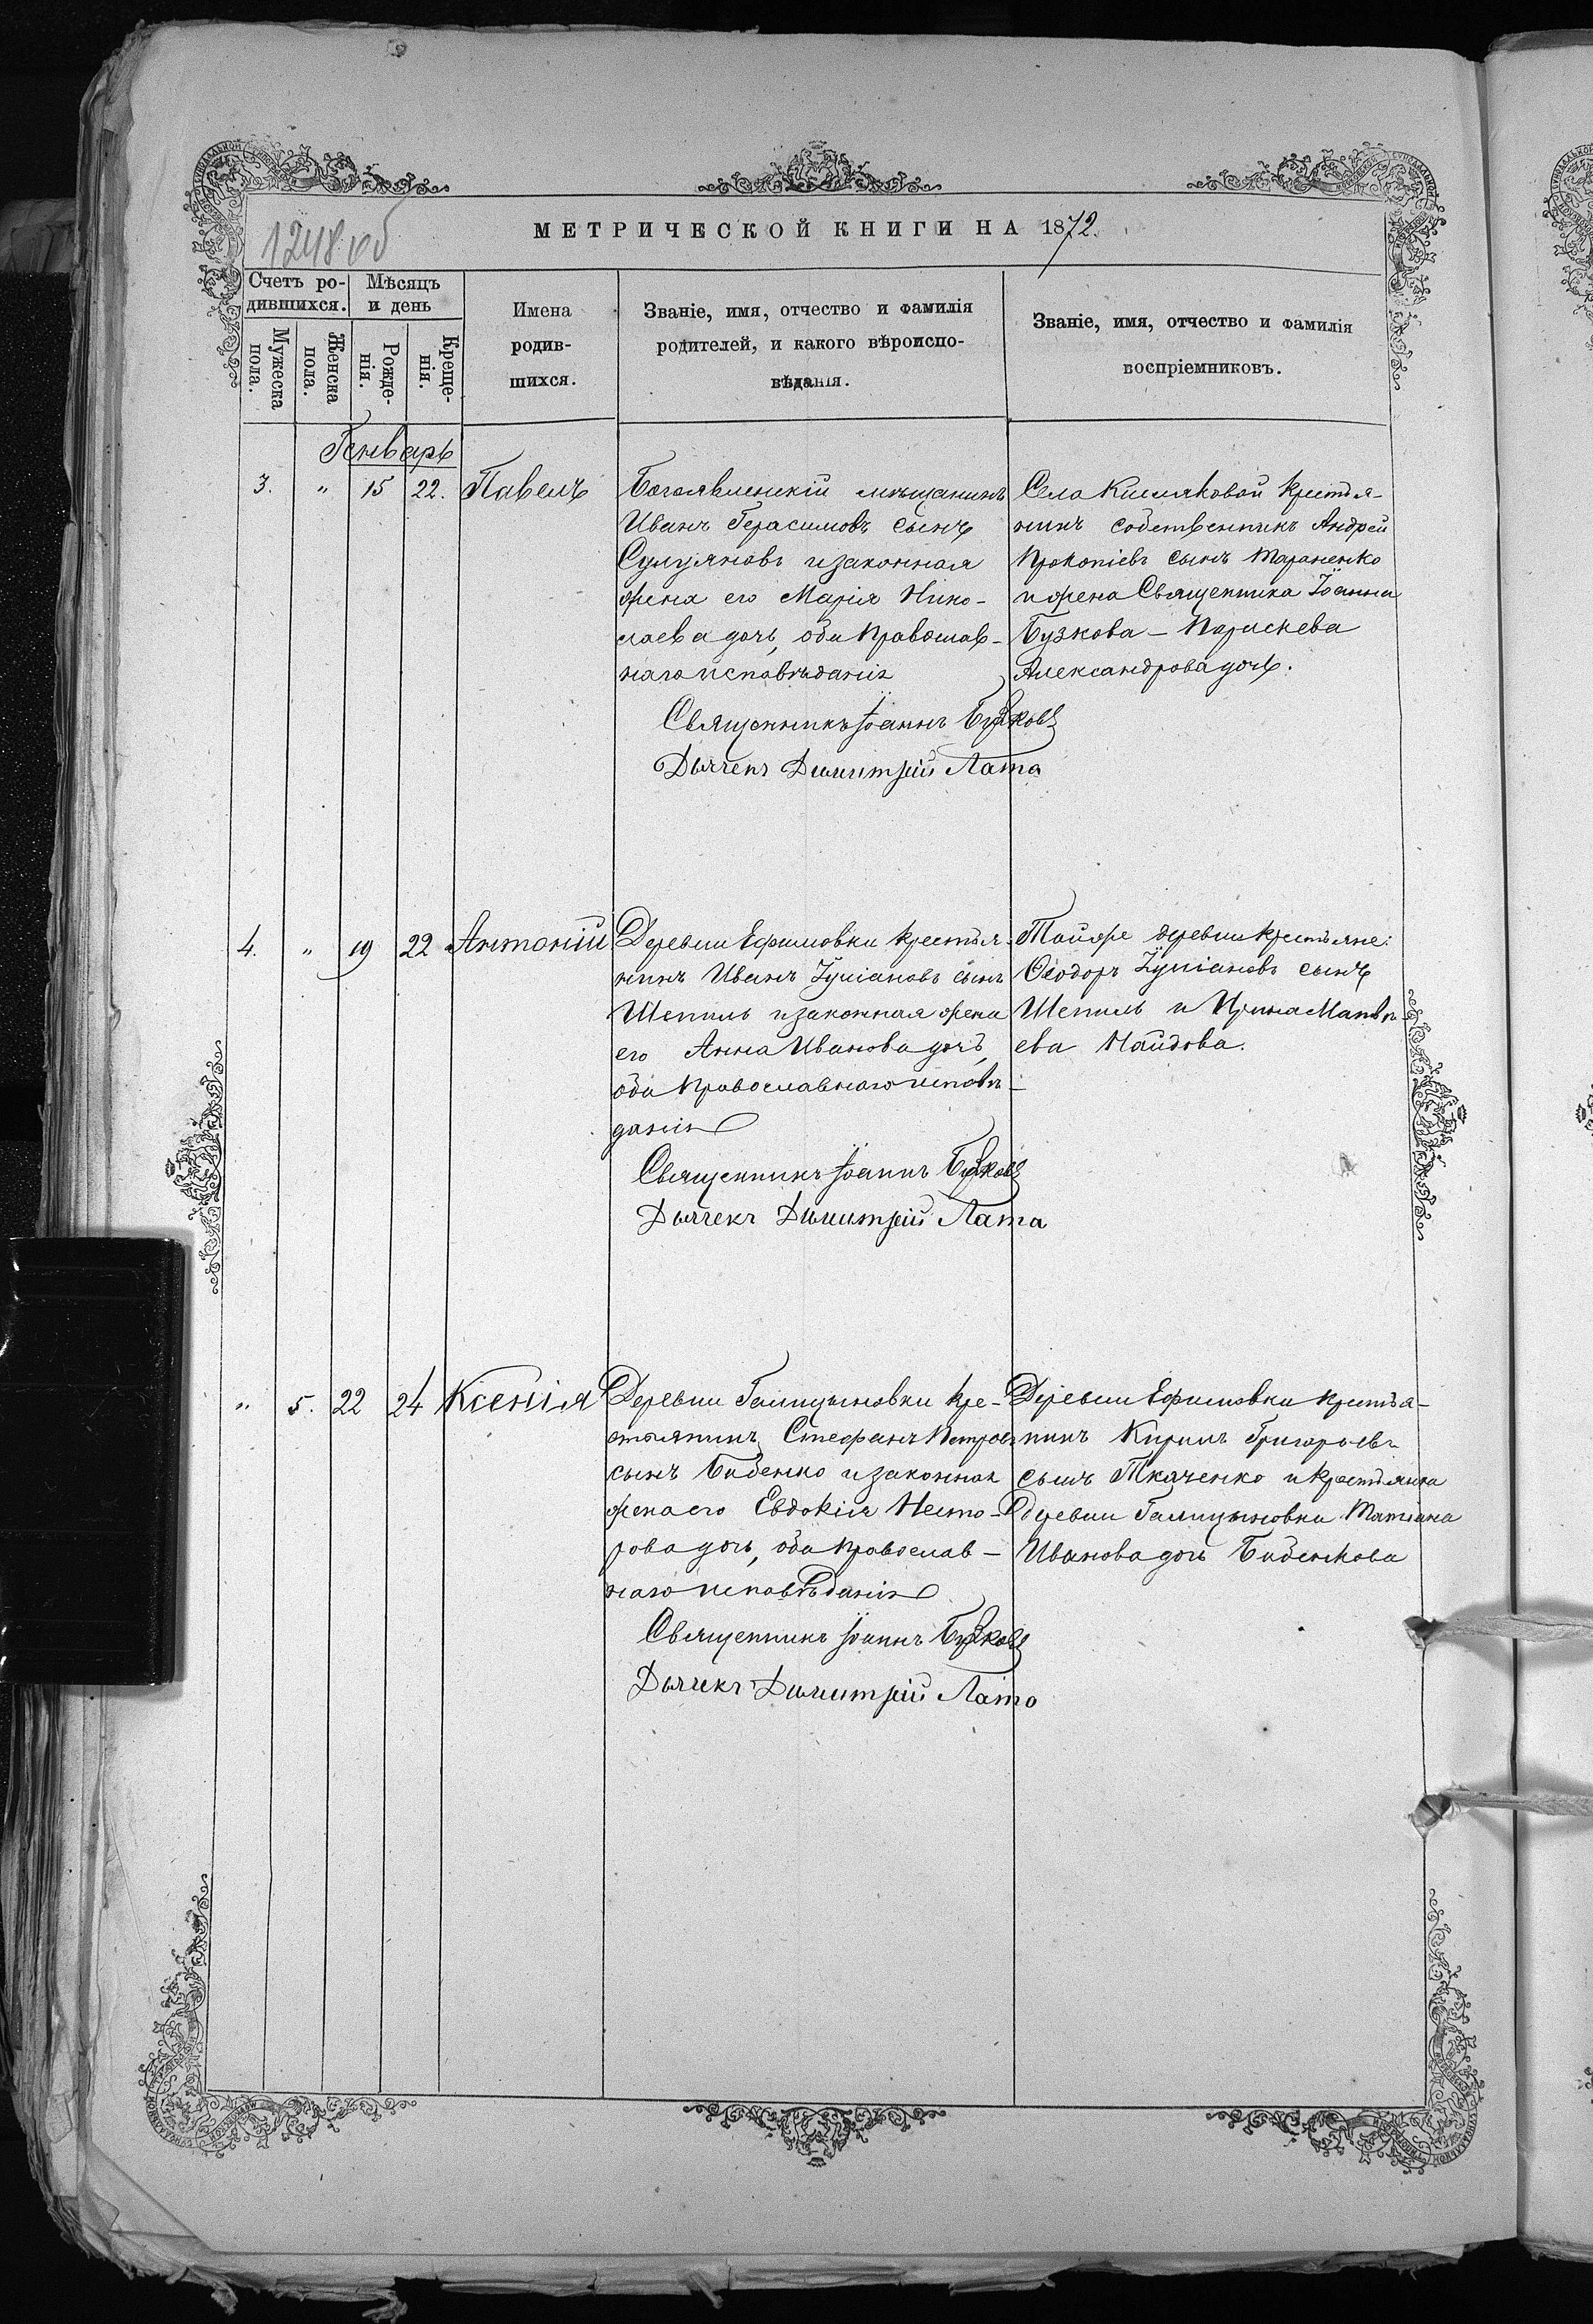 1248 об
МЕТРИЧЕСКОЙ КНИГИ НА 1872.
Счетъ ро-
дившихся.
Мѣсяцъ
и день
Мужеска
пола.
Женска
пола.
Рожде-
нія.
Креще-
нія.
Имена
родив-
шихся.
Званіе, имя, отчество и фамилія
родителей, и какого вѣроиспо-
вѣданія.
Званіе, имя, отчество и фамилія
воспріемниковъ.
Генварь
3. " 15 22. Павелъ
Богоявленскій мѣщанинъ
Иванъ Герасимовъ сынъ
и законная
жена его Марія Нико-
лаева дочь, оба Православ-
наго исповѣданія
Священникъ Іоаннъ Бузковъ
Дьячекъ Димитрій Лата
Села Кисляковой крестья-
нинъ собственникъ Андрей
Прокопіевъ сынъ Тараненко
и жена Священника Іоанна
Бузкова - Параскева
Александрова дочь.
4. " 19 22 Антоній
Деревни Ефимовки крестья-
нинъ Иванъ Іуліановъ сынъ
Шепиль и законная жена
его Анна Иванова дочь,
оба Православнаго исповѣ-
данія
Священникъ Іоаннъ Бузковъ
Дьячекъ Димитрій Лата
Тойже деревни крестьяне:
Ѳеодоръ Іуліановъ сынъ
Шепиль и Ирина Матвѣ-
ева Найдова.
" 5. 22 24 Ксенія
Деревни Галицыновки кре-
стьянинъ Стефанъ Петровъ
сынъ Бабенко и законная
жена его Евдокія Несто-
рова дочь, оба Православ-
наго исповѣданія
Священникъ Іоаннъ Бузковъ
Дьячекъ Димитрій Лата
Деревни Ефимовки крестья-
нинъ Кирилъ Григорьевъ
сынъ Ткаченко и крестьянка
деревни Галицыновки Татіана
Иванова дочь Бабенкова